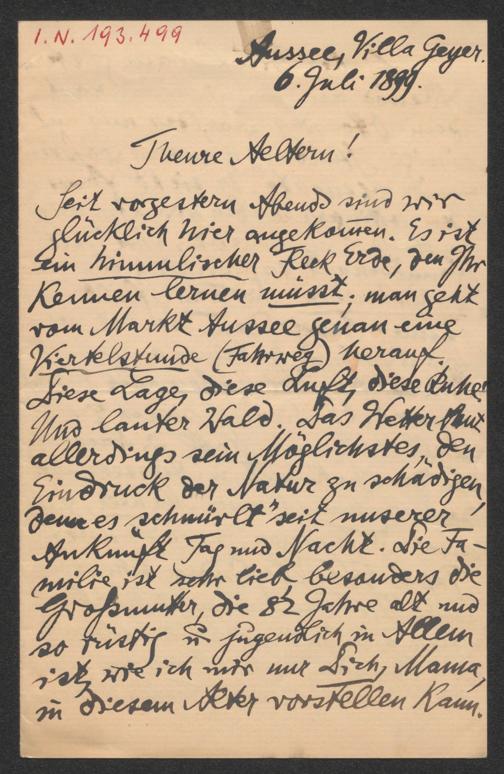 I. N. 193.499
Aussee, Villa Geyer.
6. Juli 1899.
Theure Aeltern!
Seit vorgestern Abends sind wir
glücklich hier angekommen. Es ist
ein himmlischer Fleck Erde, den Ihr
kennen lernen müsst; man geht
vom Markt Aussee genau eine
Viertelstunde (Fahrweg) herauf.
Diese Lage, diese Luft, diese Ruhe!
Und lauter Wald. Das Wetter thut
allerdings sein Möglichstes, den
Eindruck der Natur zu schädigen,
denn es „schnürlt" seit unserer
Ankunft Tag und Nacht. Die Fa-
milie ist sehr lieb, besonders die
Großmutter, die 82 Jahre alt und
so rüstig u jugendlich in Allem
ist, wie ich mir nur Dich, Mama,
in diesem Alter vorstellen kann.